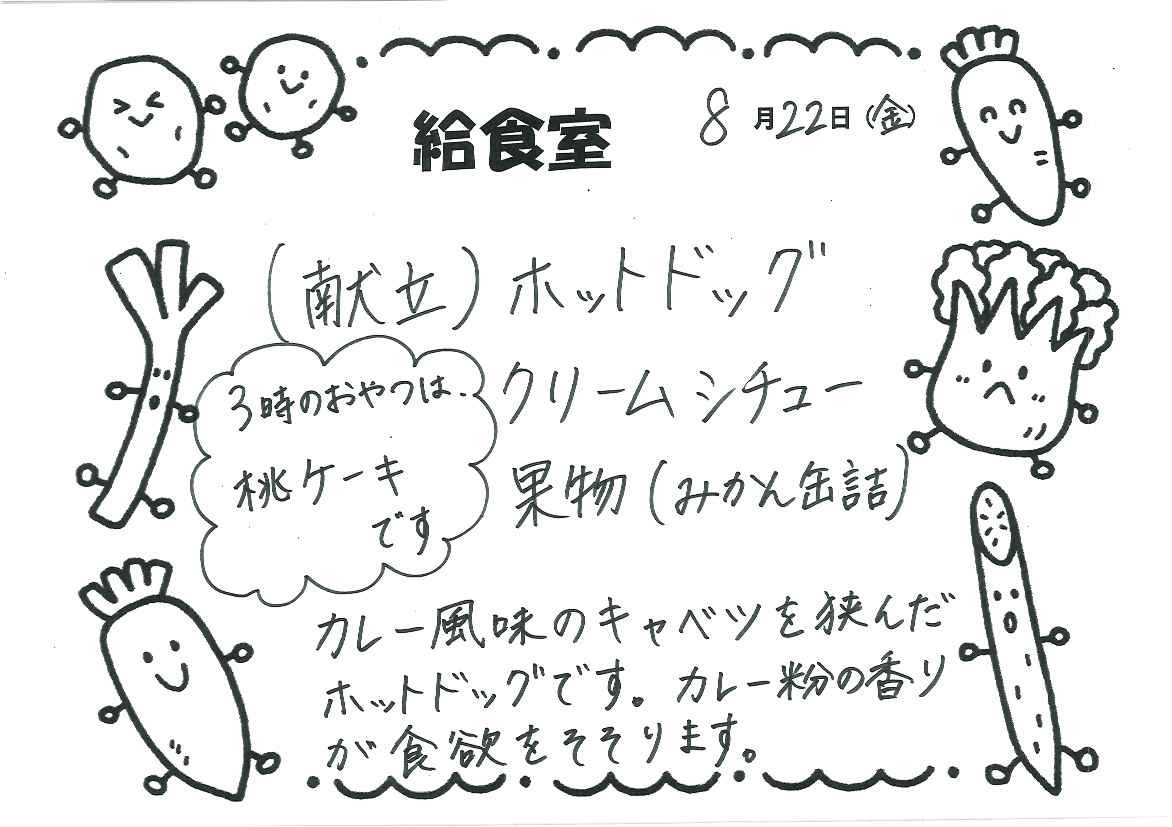 給食室
8月22日(金)
(献立)ホットドッグ
クリームシチュー
果物(みかん缶詰)
3時のおやつは、
桃ケーキ
です
カレー風味のキャベツを挟んだ
ホットドッグです。カレー粉の香り
が食欲をそそります。